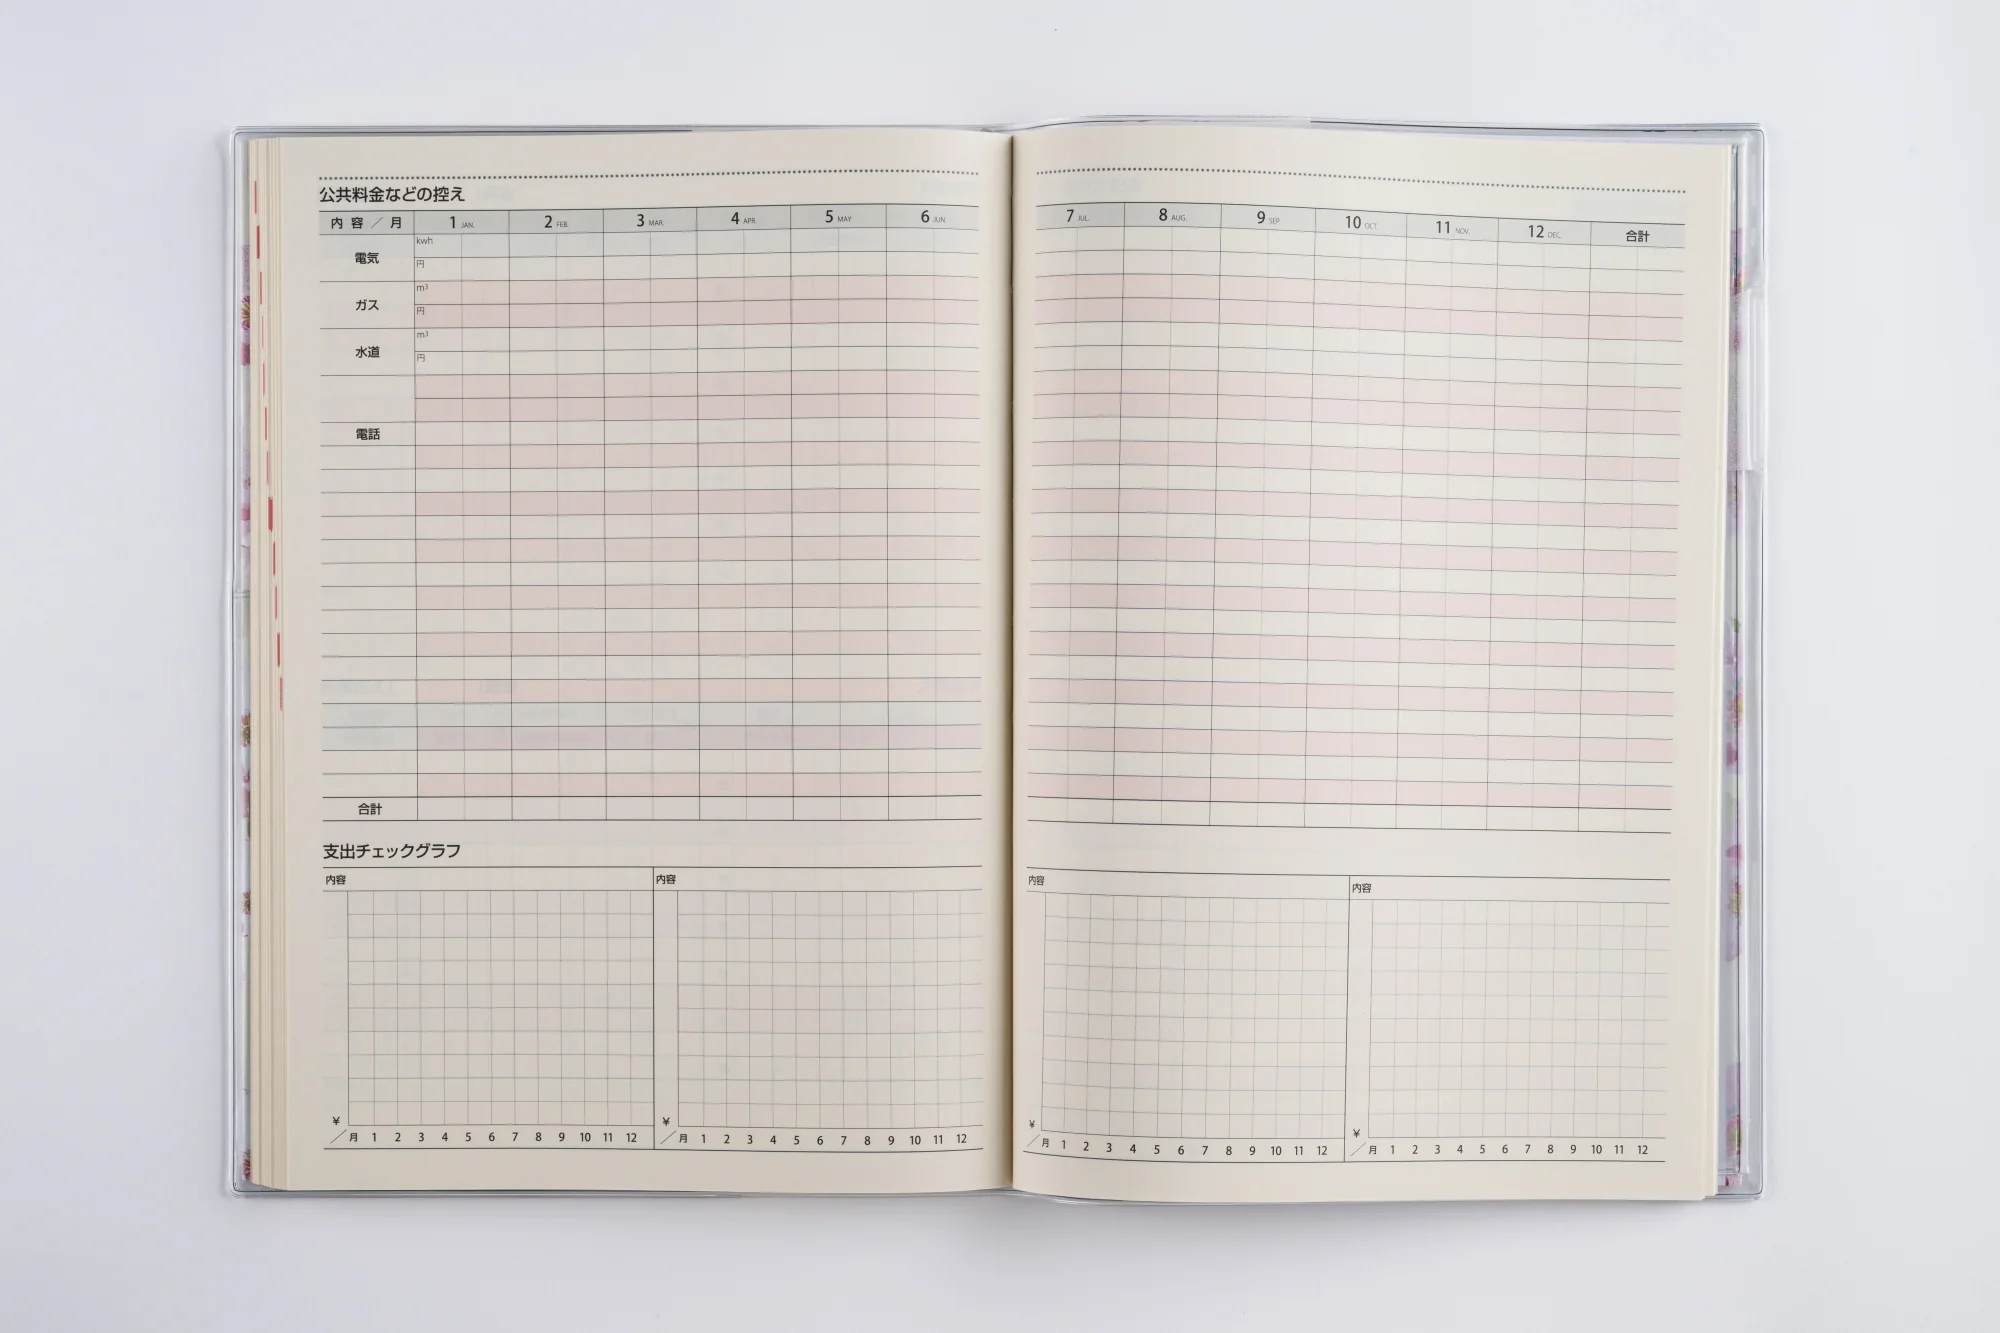 公共料金などの控え
内容／月 1 JAN. 2 FEB. 3 MAR. 4 APR. 5 MAY 6 JUN.
電気 kwh
円
ガス m³
円
水道 m³
円
電話
合計
支出チェックグラフ
内容 内容
¥ ¥
／月 1 2 3 4 5 6 7 8 9 10 11 12 ／月 1 2 3 4 5 6 7 8 9 10 11 12
7 JUL. 8 AUG. 9 SEP. 10 OCT. 11 NOV. 12 DEC. 合計
内容 内容
¥ ¥
／月 1 2 3 4 5 6 7 8 9 10 11 12 ／月 1 2 3 4 5 6 7 8 9 10 11 12